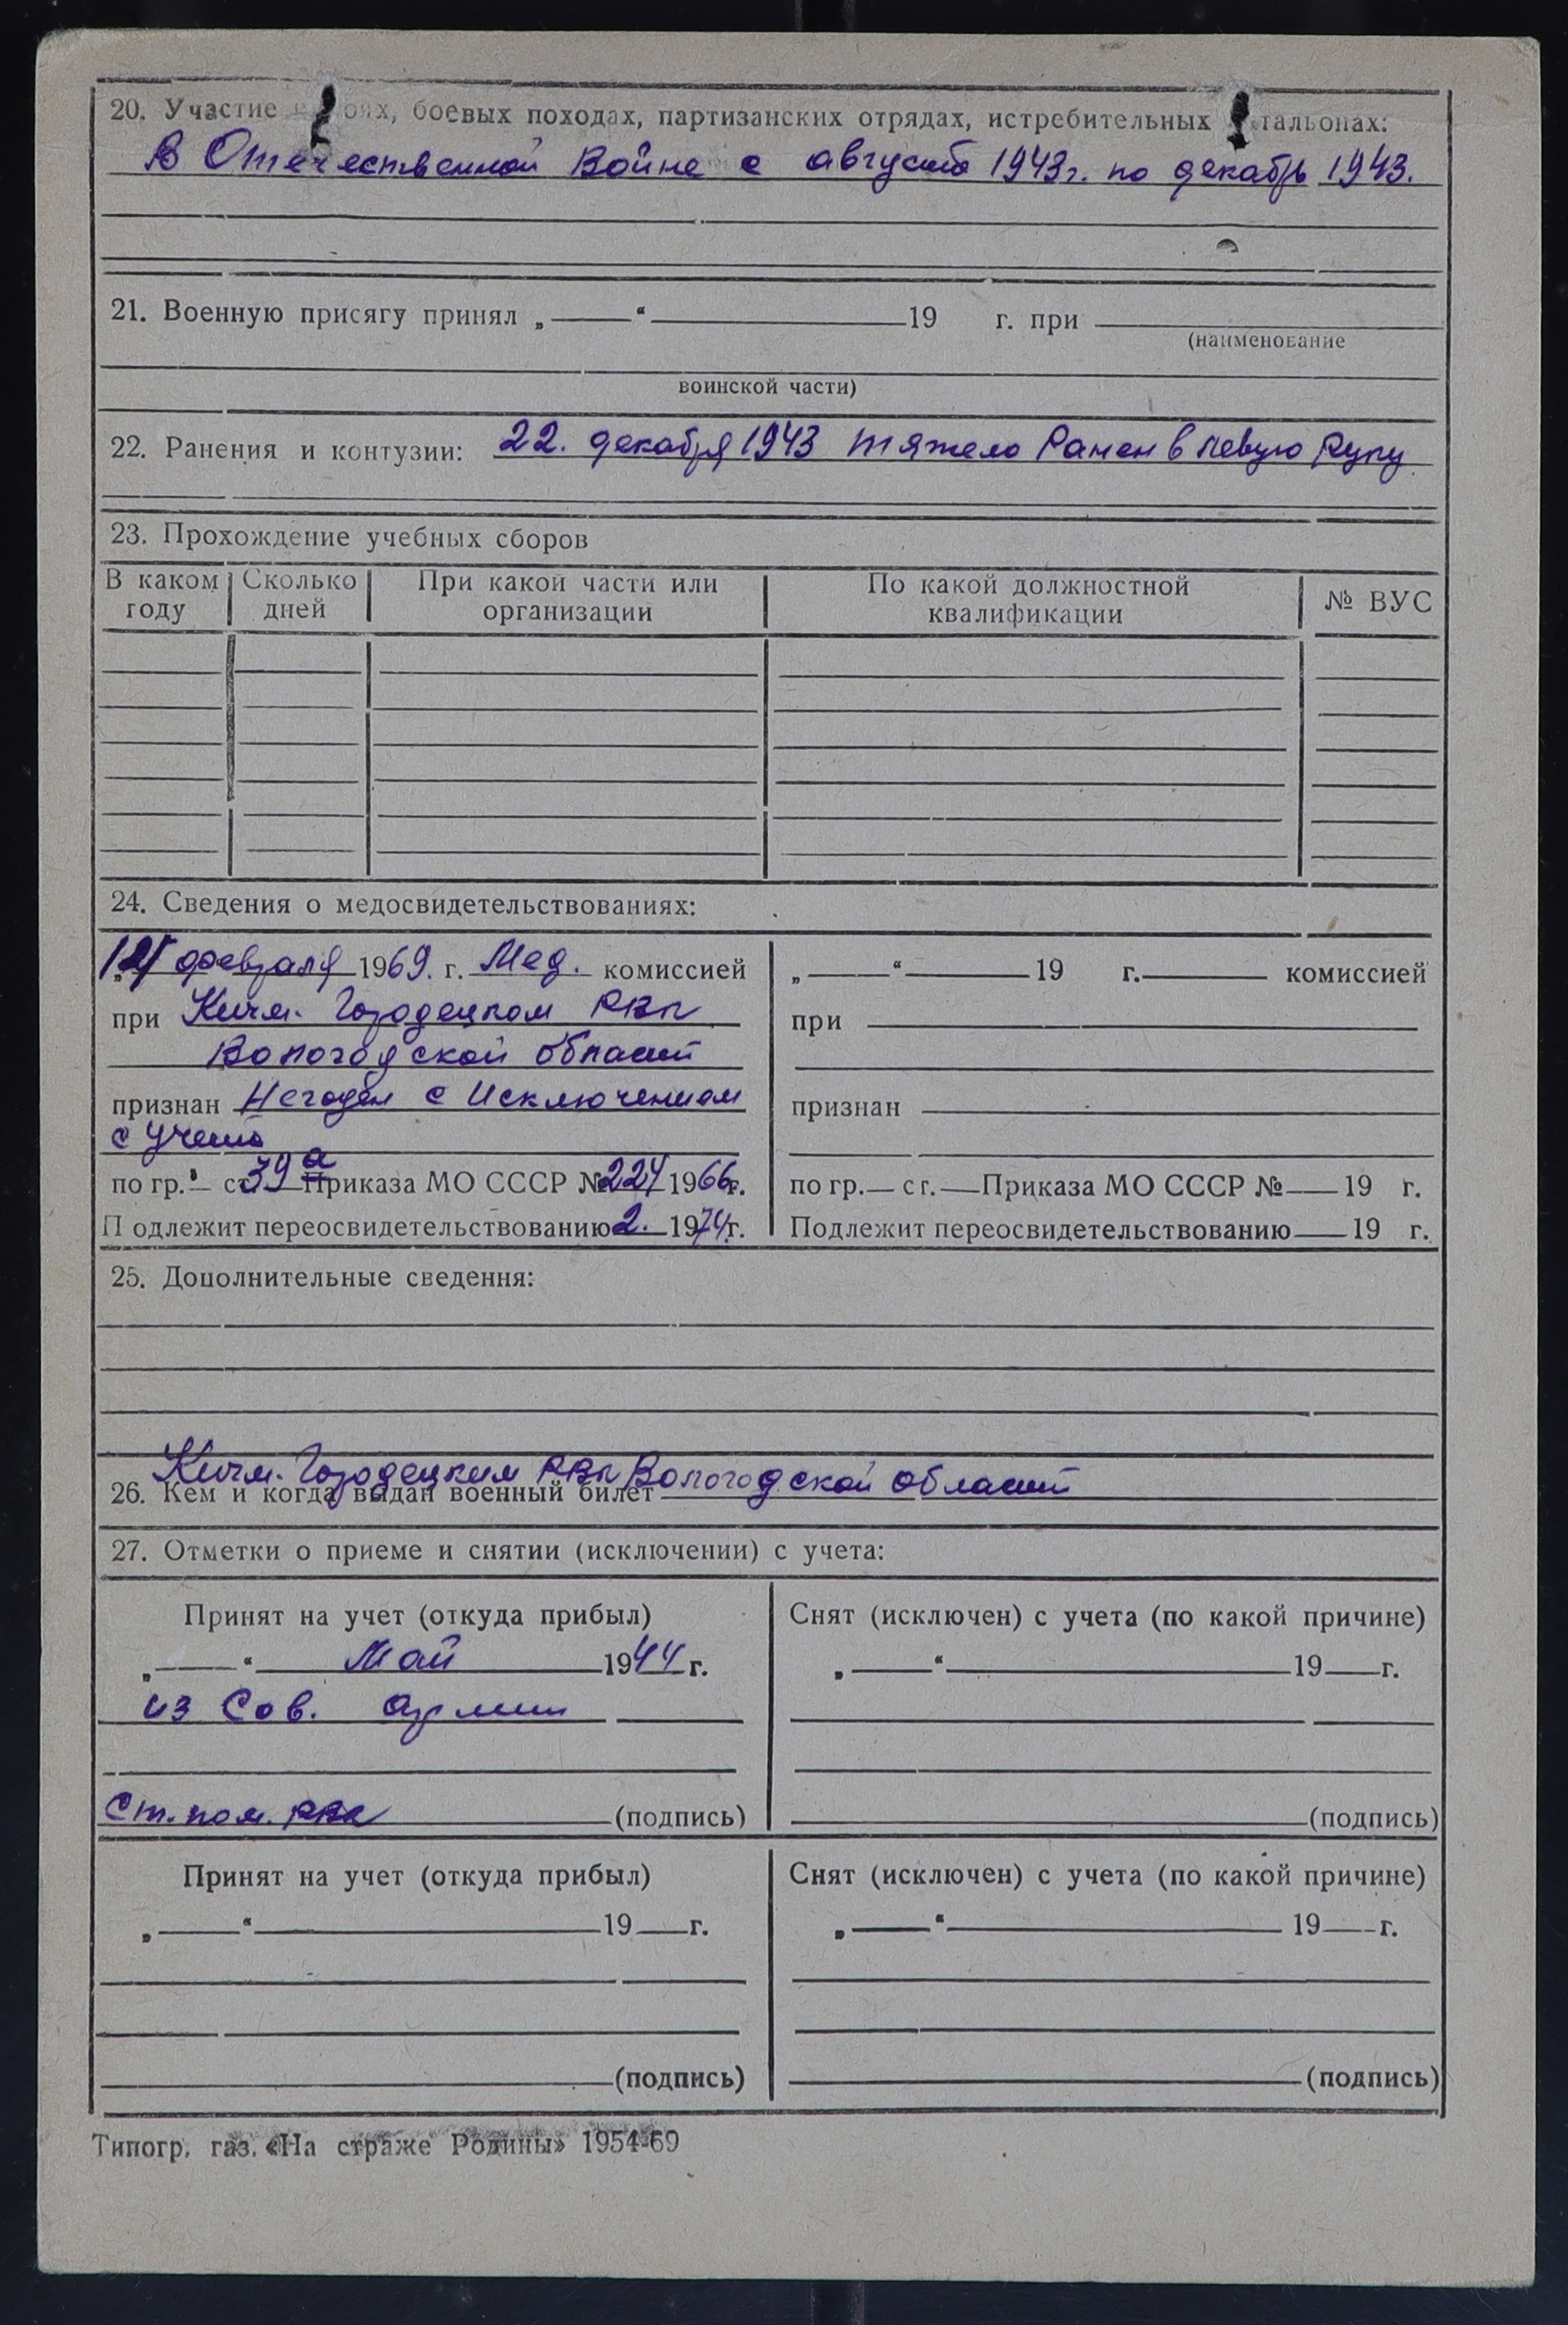 20. Участие оях, боевых походах, партизанских отрядах, истребительных тальонах:
В Отечественной Войне с августа 1943г. по декабрь 1943.
21. Военную присягу принял „ “ 19 г. при
(наименование
воинской части)
22. Ранения и контузии: 22. декабря 1943 тяжело Ранен в левую Руку
23. Прохождение учебных сборов
В каком году Сколько дней При какой части или организации По какой должностной квалификации № ВУС
24. Сведения о медосвидетельствованиях:
февраля 1969. г. Мед. комиссией
при Кичм. Городецком РВК
Вологодской области
признан Негоден с Исключением
с учета
по гр. – ст. 39 а Приказа МО СССР № 224 1966 г.
Подлежит переосвидетельствованию 2. 1974 г.
„ “ 19 г. комиссией
при
признан
по гр. ст. Приказа МО СССР № 19 г.
Подлежит переосвидетельствованию 19 г.
25. Дополнительные сведения:
26. Кем и когда выдан военный билет Кичм. Городецким РВК Вологодской области
27. Отметки о приеме и снятии (исключении) с учета:
Принят на учет (откуда прибыл)
„ “ Май 1944 г.
из Сов. армии
Ст. пом. РВК (подпись)
Снят (исключен) с учета (по какой причине)
„ “ 19 г.
(подпись)
Принят на учет (откуда прибыл)
„ “ 19 г.
(подпись)
Снят (исключен) с учета (по какой причине)
„ “ 19 г.
(подпись)
Типогр. газ. «На страже Родины» 1954-69